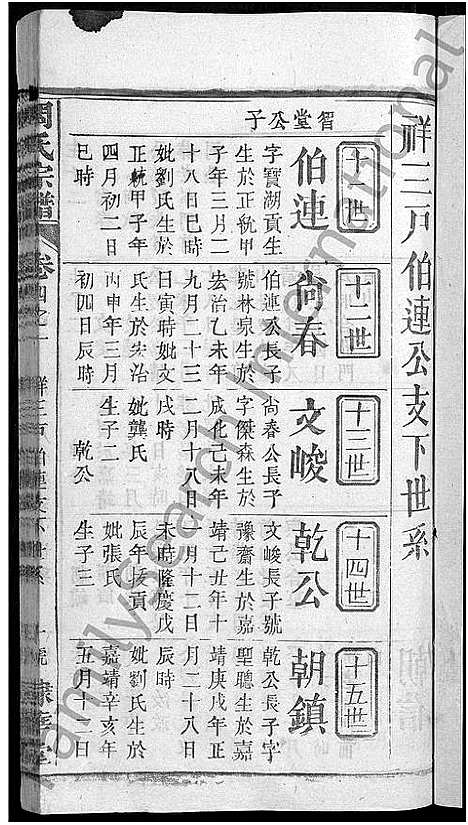 祥三戸伯連公支下世系
十一世
智堂公子
伯連
字寶湖貢生
生於正統甲
子年三月二
十八日巳時
妣劉氏生於
正統甲子年
四月初二日
巳時
十二世
尙春
伯連公長子
號林泉生於
宏治乙未年
九月二十三
日寅時妣文
氏生於宏治
丙申年三月
初四日辰時
十三世
文峻
尙春公長子
字傑森生於
成化己未年
二月十八日
戌時
妣龔氏
生子二
乾公
十四世
乾公
文峻長子號
豫齋生於嘉
靖己丑年十
一月十二日
未時隆慶戊
辰年恢貢
妣張氏
生子三
十五世
朝鎮
乾公長子字
聖聰生於嘉
靖庚戌年正
月二十八日
辰時
妣劉氏生於
嘉靖辛亥年
五月十二日
周氏宗譜
卷四之一
祥三戸伯連支下世系
FamilySearch International